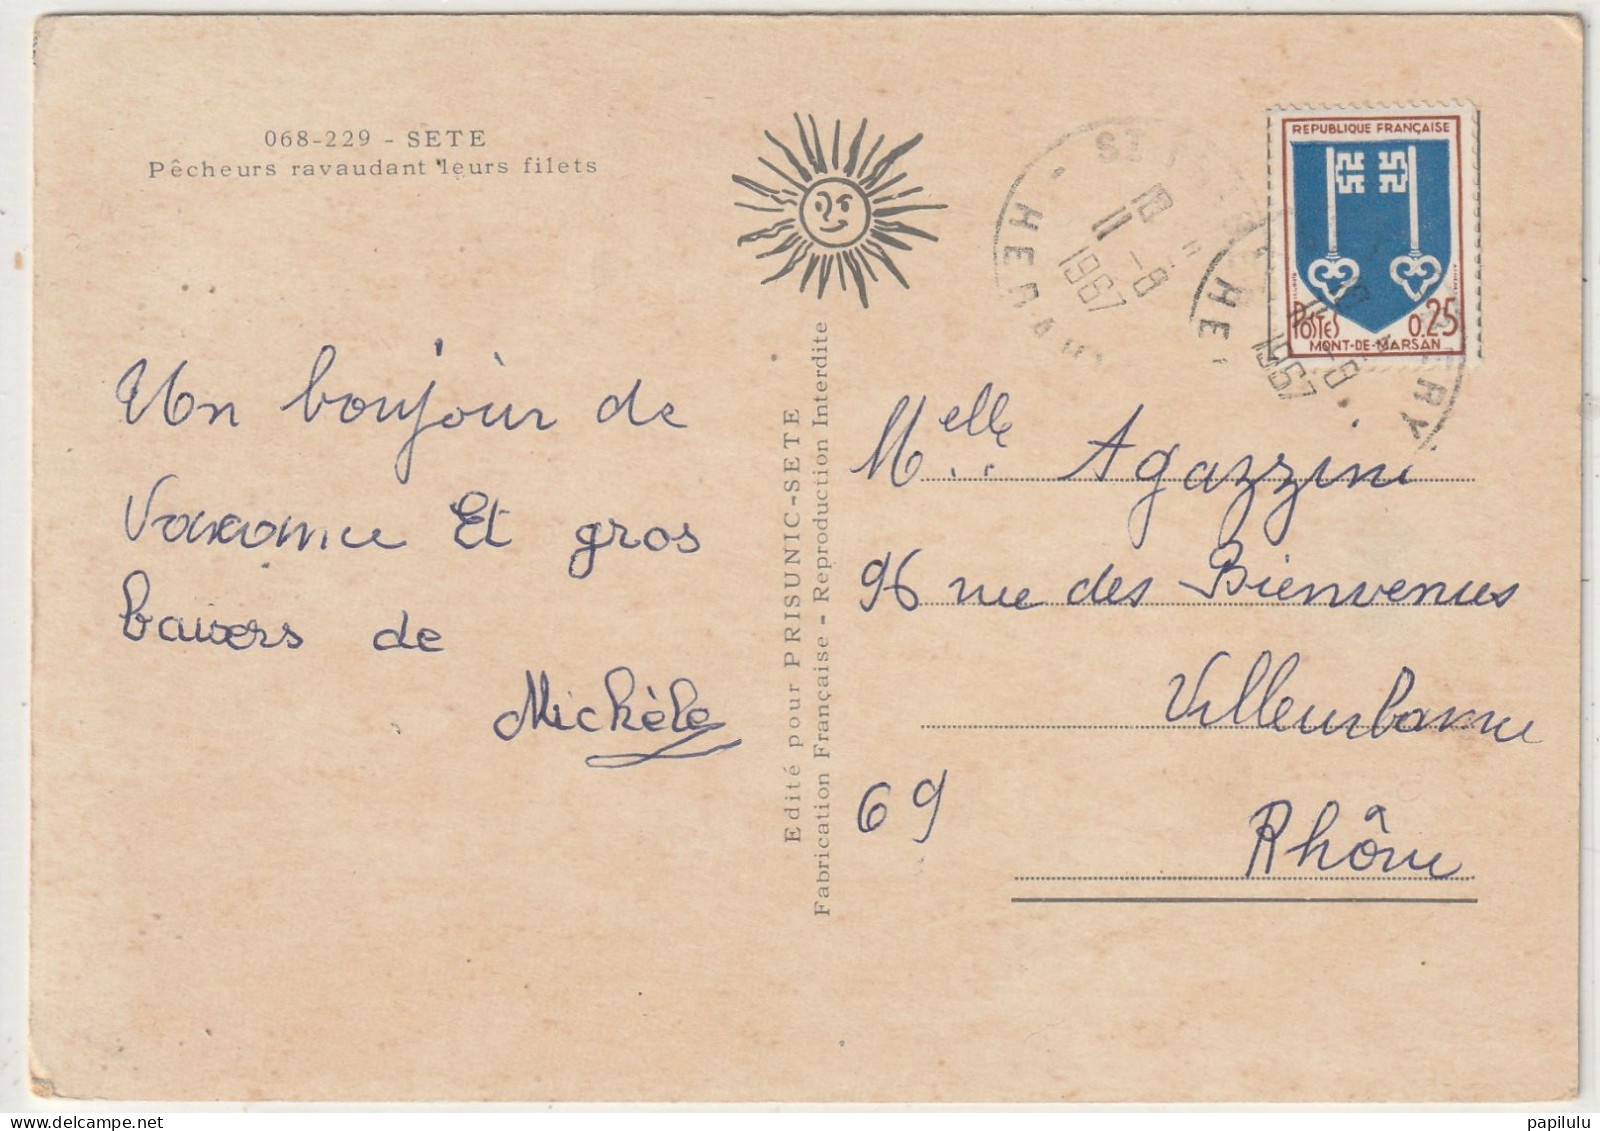 068-229 - SETE
Pêcheurs ravaudant leurs filets
Un bonjour de
Vacance Et gros
baisers de
Michèle
Edité pour PRISUNIC-SETE
Fabrication Française - Reproduction Interdite
HERAULT
18 H
11 - 8
1967
HE
1967
REPUBLIQUE FRANÇAISE
POSTES 0.25
MONT-DE-MARSAN
Melle Agazzini
96 rue des Bienvenus
Villeurbanne
69
Rhône
papilulu